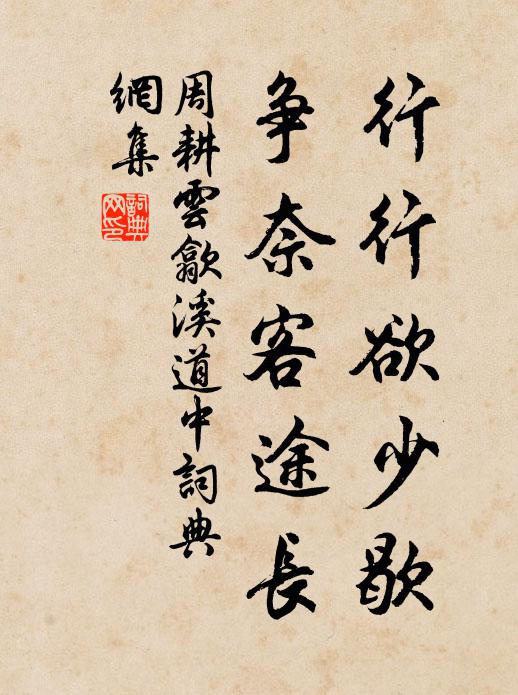 行行欲少歇
争奈客途長
周耕雲歙溪道中詞典
網集
詞典
网印